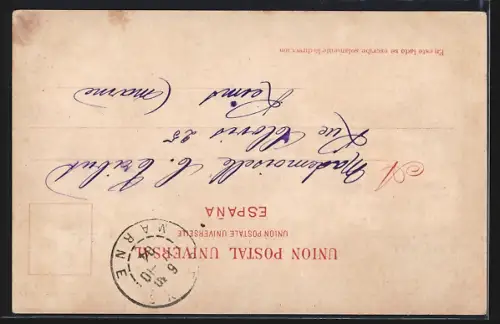 UNION POSTAL UNIVERSAL
UNION POSTALE UNIVERSELLE
ESPAÑA
A
Mademoiselle C.
Rue Clovis 25
Reims (marne)
En este lado se escribe solamente la dirección
MARNE